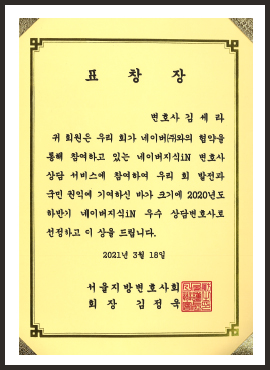 표 창 장
변호사 김 세 라
귀 회원은 우리 회가 네이버㈜와의 협약을
통해 참여하고 있는 네이버지식iN 변호사
상담 서비스에 참여하여 우리 회 발전과
국민 권익에 기여하신 바가 크기에 2020년도
하반기 네이버지식iN 우수 상담변호사로
선정하고 이 상을 드립니다.
2021년 3월 18일
서울지방변호사회
회 장 김 정 욱